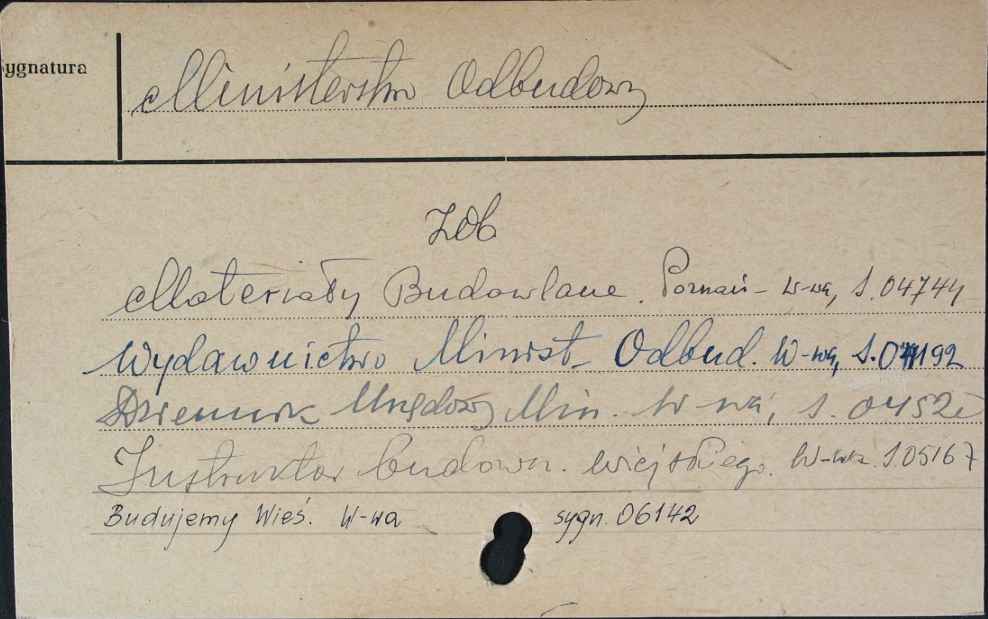 ygnatura
Ministerstwo Odbudowy
Zob
Materiały Budowlane. Poznań - W-wa, S. 04744
Wydawnictwo Minist. Odbud. W-wa, S. 04192
Dziennik Urzędowy Min. W-wa, S. 0452
Instruktor budown. wiejskiego. W-wa. S. 05167
Budujemy Wieś. W-wa sygn. 06142